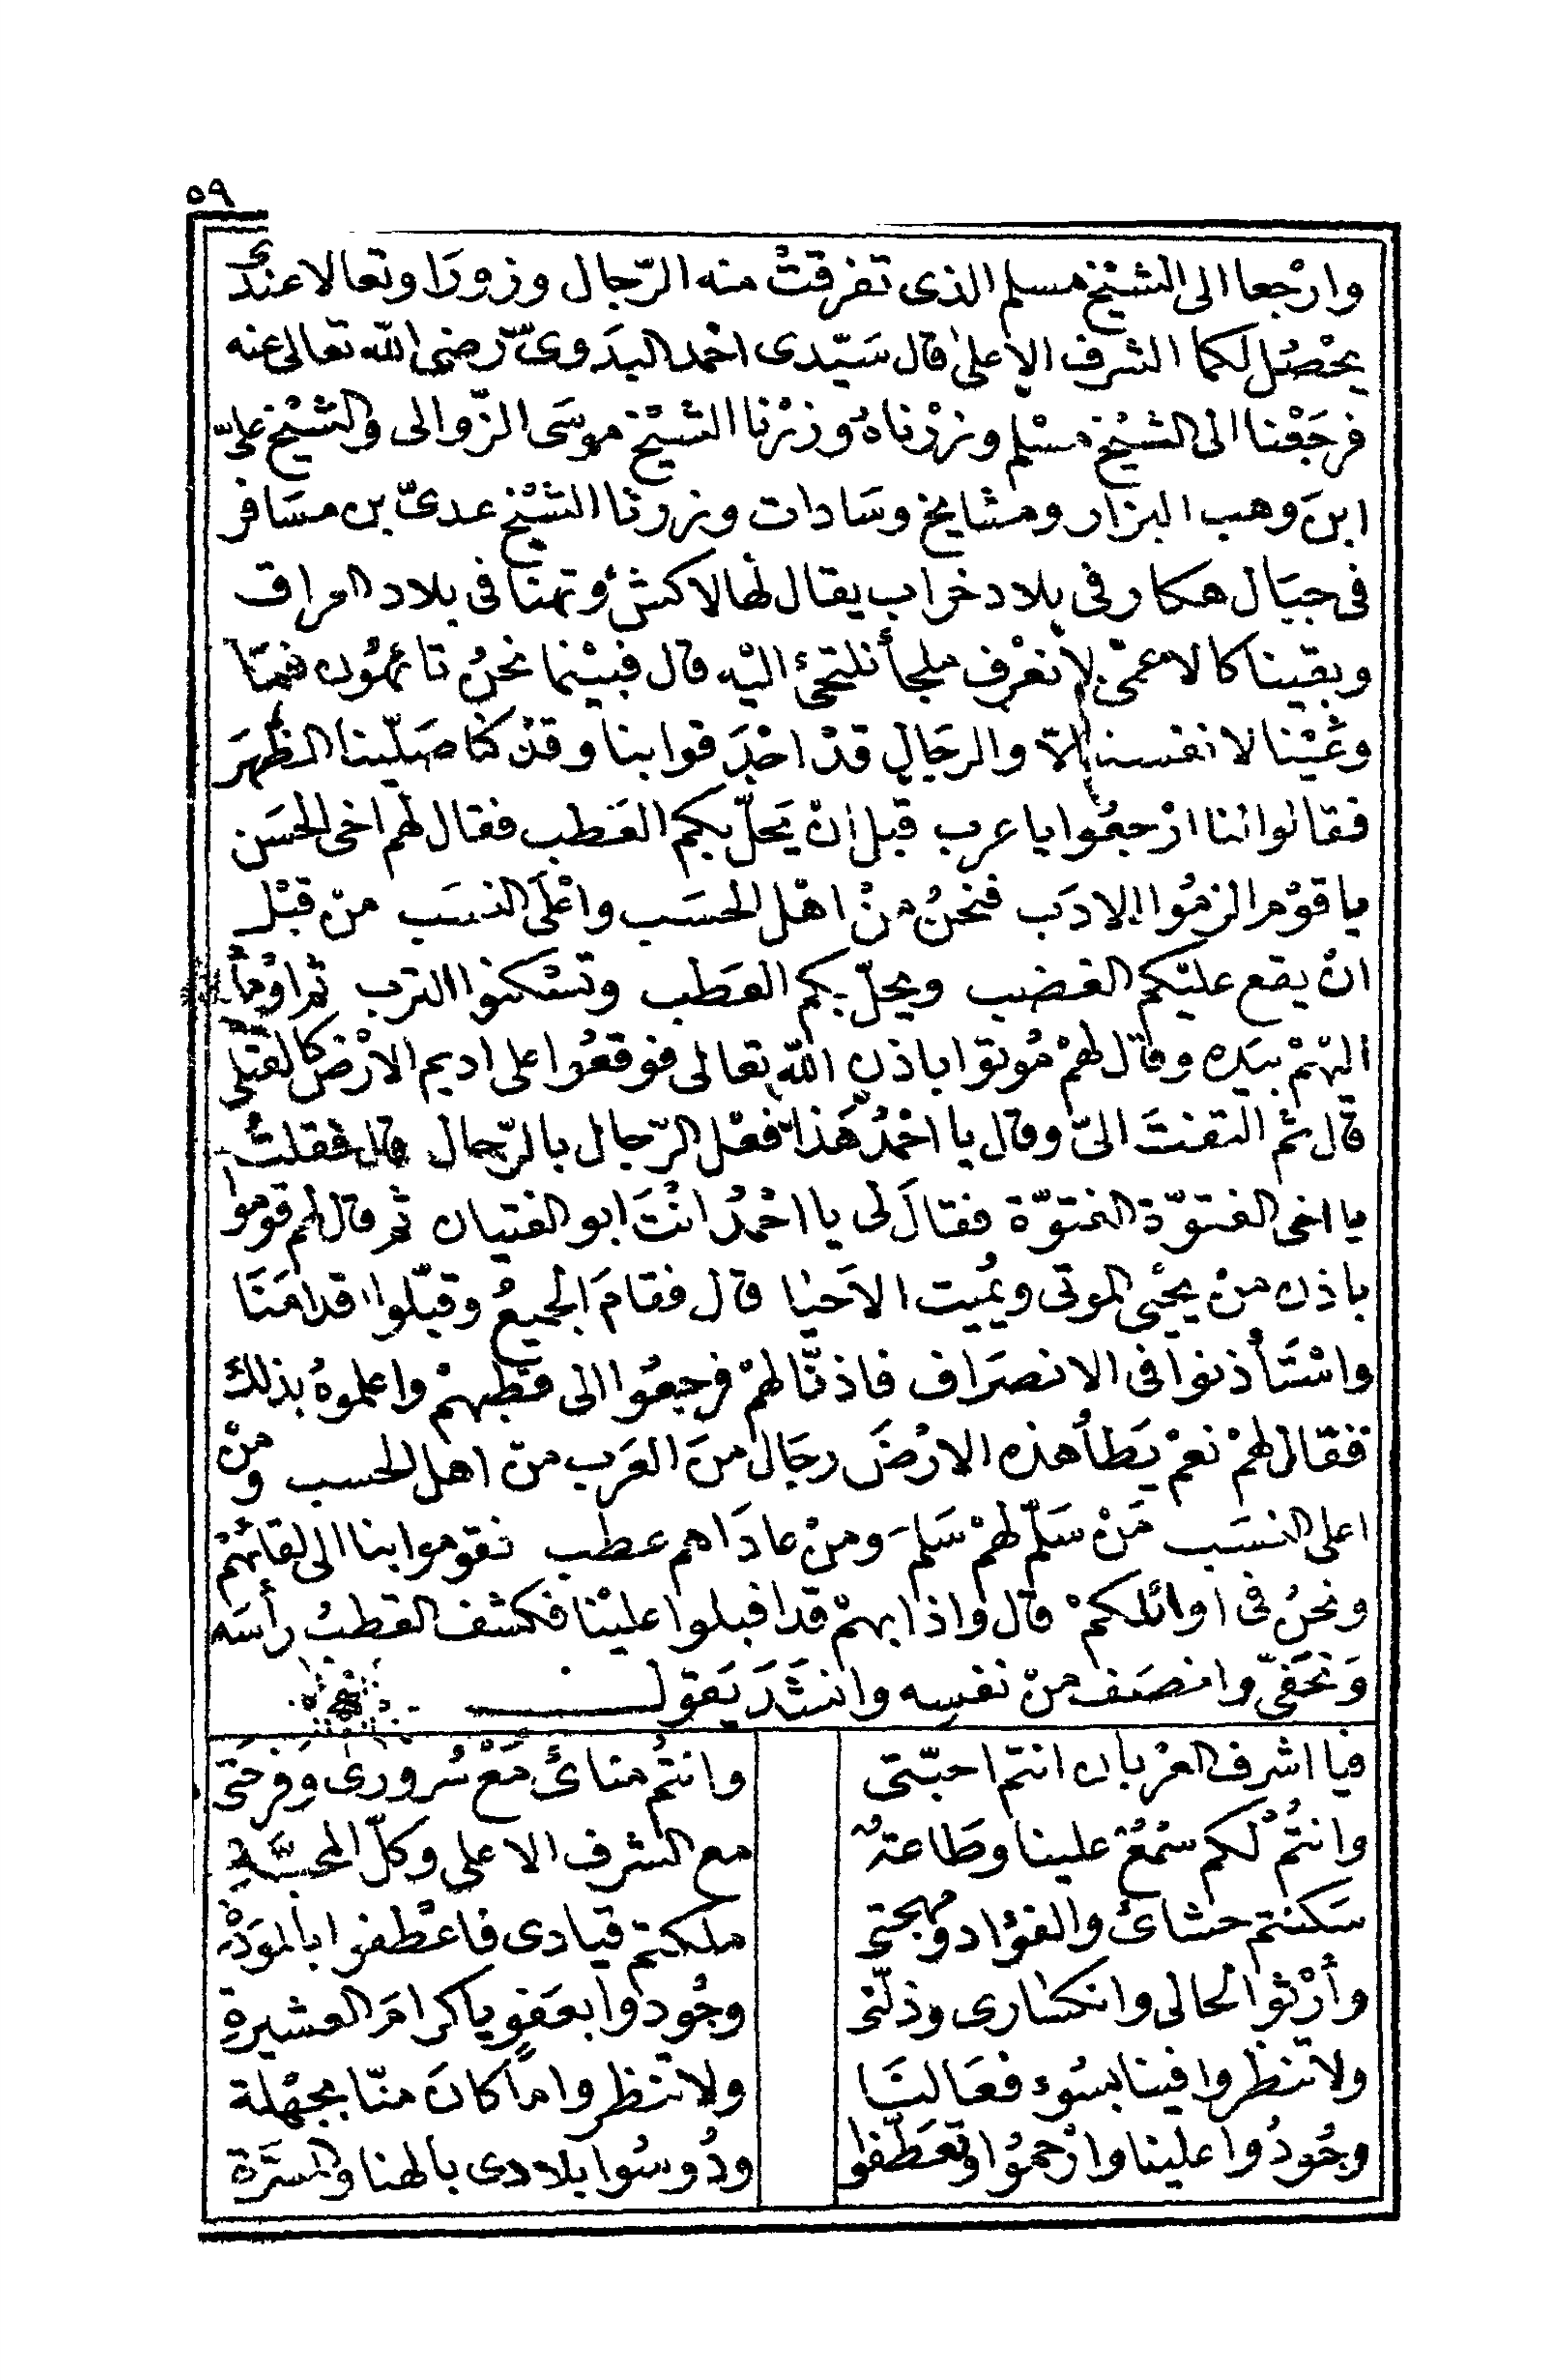 ٥٩
وارْجعا الى الشيْخ مسلم الذى تفرقتْ منه الرّجال وزورَا وتعالا عندى
يحْصُل لكما الشرف الاعلى قال سَيّدى احْمد البدَوىّ رضى الله تعالى عنه
فرجَعْنا الى الشيْخ مسْلم وزرْناهُ وزرْنا الشيْخ موسَى الزّوالى والشيْخ علىّ
ابنَ وهب البزار ومشايخ وسَادات وزرنا الشيْخ عدىّ بن مسَافر
فى جبَال هكار وفى بلاد خراب يقال لها لاكش وتهنا فى بلاد العراق
وبقينا كالاعمْى لا نعْرف ملجأ نلتجئ اليْه قال فبيْنما نحْنُ تائهُون فهمّنا
وغمّيْنا لانفسنا الّا والرجَال قدْ احْدَقوا بنا وقدْ كنا صَلّينا الظهرَ
فقالوا لنا ارْجعُوا يا عرب قبل انْ يَحلّ بكم العَطب فقال لهم اخى الحسَن
يا قوْم الزمُوا الادَب فنحْنُ منْ اهْل الحسَب واعْلَى النسَب منْ قبْل
انْ يقع عليْكم الغضب ويحلّ بكم العَطب وتسْكنوا الترب ثم اوْمأ
اليْهمْ بيَده وقال لهمْ مُوتوا باذن الله تعالى فوقعُوا على اديم الارْض كالقتلى
قال ثم التفتَ الىّ وقال يا احْمدُ هَذا فعْل الرّجال بالرّجال قال فقلتُ
يا اخى الفتوّة الفتوّة فقالَ لى يا احْمدُ انْتَ ابو الفتيان ثم قال لهم قوموا
باذن منْ يحْيى الموتى ويُميت الاَحيْا قال فقامَ الجميعُ وقبّلوا اقدامَنَا
واسْتَأذنوا فى الانصرَاف فاذنّا لهمْ فرجعُوا الى قطبهمْ واعلموهُ بذلك
فقال لهمْ نعمْ يَطأُ هذه الارْضَ رجَال منَ العَرب منْ اهل الحسب ومنْ
اعلى النسَب مَنْ سَلّم لهمْ سَلمَ ومنْ عادَاهم عطب فقوموا بنا الى لقائهمْ
ونحْنُ فى اوائلكمْ قال واذا بهمْ قد اقبلوا عليْنا فكشف القطبُ رأسَه
وَتحَفّى وانصَف منْ نفسِه وانشَدَ يَقول
فيا اشرف العرْبان انتم احبّتى وانتمُ منائ مَعْ سُرورى وَفرحَتى
وانتُمْ لكم سْمعُ علينا وطَاعةُ مع الشرف الاعلى وكلّ المحبَّةِ
سَكنتم حشائ والفؤاد ومهجتى ملكتم قيادى فاعْطفوا بالموَدّة
وأرْثوا لحالى وانكسَارى وذلّتى وجُودوا بعَفوٍ يا كرامَ العشيرةِ
ولا تنظروا فينا بسُوء فعَالنَا ولا تنظروا ما كانَ منّا بجهْلة
وجُودُوا علينا وارْحمُوا وتعَطّفوا ودُوسُوا بلادى بالهنا والمسَرَّة